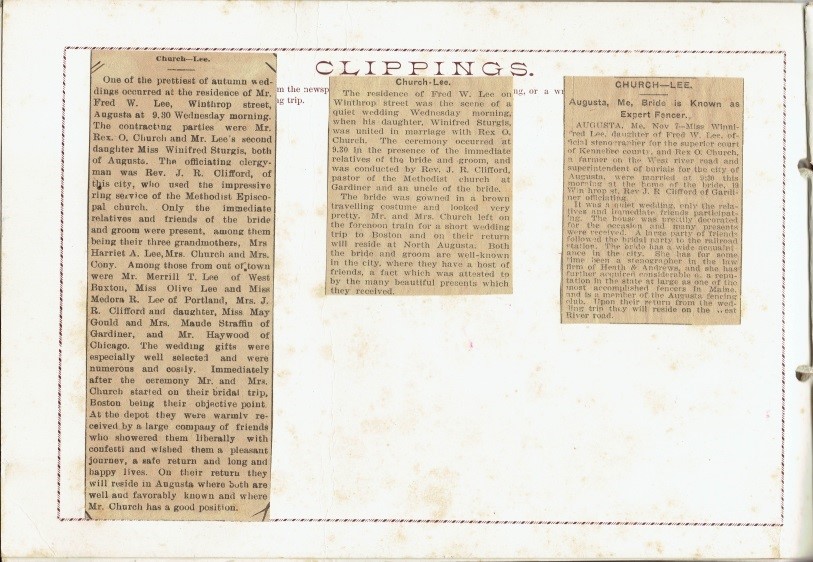 CLIPPINGS.
m the newsp
ng, or a wr
ng trip.
Church—Lee.
One of the prettiest of autumn wed-
dings occurred at the residence of Mr.
Fred W. Lee, Winthrop street,
Augusta at 9.30 Wednesday morning.
The contracting parties were Mr.
Rex. O, Church and Mr. Lee's second
daughter Miss Winifred Sturgis, both
of Augusta. The officiating clergy-
man was Rev. J. R. Clifford, of
this city, who used the impressive
ring service of the Methodist Episco-
pal church. Only the immediate
relatives and friends of the bride
and groom were present, among them
being their three grandmothers, Mrs
Harriet A. Lee,Mrs. Church and Mrs.
Cony. Among those from out of town
were Mr. Merrill T. Lee of West
Buxton, Miss Olive Lee and Miss
Medora R. Lee of Portland, Mrs. J.
R. Clifford and daughter, Miss May
Gould and Mrs. Maude Straffin of
Gardiner, and Mr. Haywood of
Chicago. The wedding gifts were
especially well selected and were
numerous and costly. Immediately
after the ceremony Mr. and Mrs.
Church started on their bridal trip,
Boston being their objective point.
At the depot they were warmly re-
ceived by a large company of friends
who showered them liberally with
confetti and wished them a pleasant
journey, a safe return and long and
happy lives. On their return they
will reside in Augusta where both are
well and favorably known and where
Mr. Church has a good position.
Church-Lee.
The residence of Fred W. Lee on
Winthrop street was the scene of a
quiet wedding Wednesday morning,
when his daughter, Winifred Sturgis,
was united in marriage with Rex O,
Church. The ceremony occurred at
9.30 in the presence of the immediate
relatives of the bride and groom, and
was conducted by Rev. J. R. Clifford,
pastor of the Methodist church at
Gardiner and an uncle of the bride.
The bride was gowned in a brown
travelling costume and looked very
pretty. Mr. and Mrs. Church left on
the forenoon train for a short wedding
trip to Boston and on their return
will reside at North Augusta. Both
the bride and groom are well-known
in the city, where they have a host of
friends, a fact which was attested to
by the many beautiful presents which
they received.
CHURCH—LEE.
Augusta, Me, Bride is Known as
Expert Fencer.
AUGUSTA, Me, Nov 7—Miss Wini-
fred Lee, daughter of Fred W. Lee, of-
ficial stenographer for the superior court
of Kennebec county, and Rex O. Church,
a farmer on the West river road and
superintendent of burials for the city of
Augusta, were married at 9:30 this
morning at the home of the bride, 19
Winthrop st, Rev J. R Clifford of Gardi-
ner officiating.
It was a quiet wedding, only the rela-
tives and immediate friends participat-
ing. The house was prettily decorated
for the occasion and many presents
were received. A large party of friends
followed the bridal party to the railroad
station. The bride has a wide acquaint-
ance in the city. She has for some
time been a stenographer in the law
firm of Heath & Andrews, and she has
further acquired considerable of a repu-
tation in the state at large as one of the
most accomplished fencers in Maine,
and is a member of the Augusta fencing
club. Upon their return from the wed-
ding trip they will reside on the West
River road.